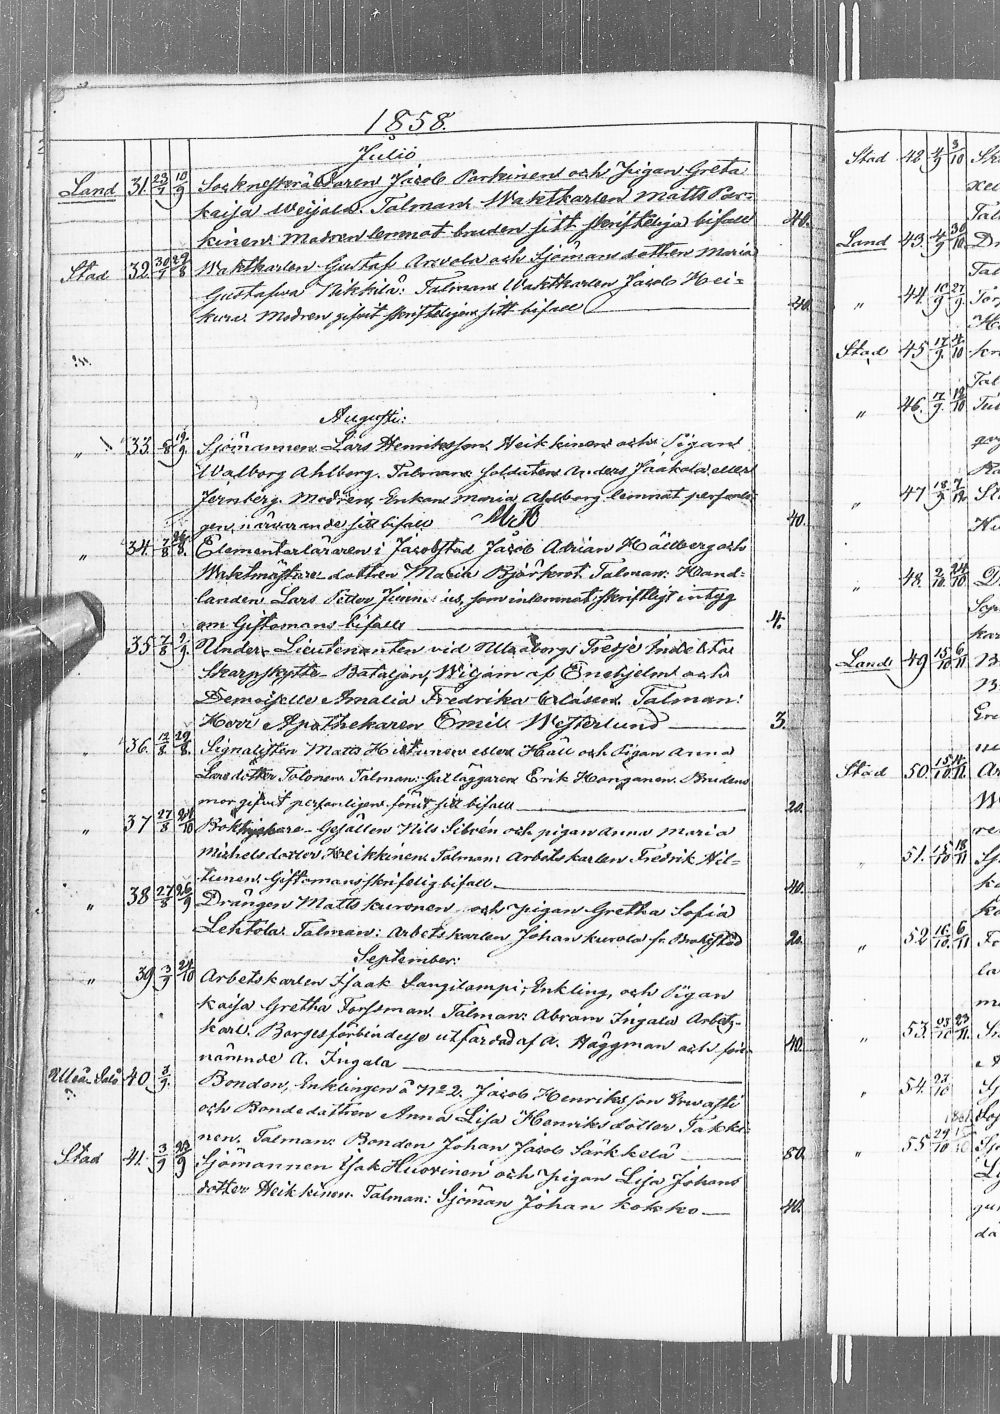 1858.
Julii
Land 31. 23/7 10/9 Sockneskräddaren Jacob Parkinen och Pigan Greta
Kaisa Weijola. Talman: Waktkarlen Matts Par-
kinen. Modren lemnat bruden sitt skriftliga bifall 40.
Stad 32. 30/7 29/8 Waktkarlen Gustaf Arvola och Sjömansdottren Maria
Gustafva Nikkilä: Talman Waktkarlen Jacob Hei-
kura. Modren gifvit skriftligen sitt bifall 40.
Augusti:
" 33. 6/8 19/9. Sjömannen Lars Henriksson Heikkinen och Pigan
Walborg Ahlberg. Talman Soldaten Anders Jaakola eller
Jernberg. Modren, Enkan Maria Ahlberg lemnat personli-
gen närvarande sitt bifall 40.
" 34. 7/8 Elementarläraren i Jacobstad Jacob Adrian Hällberg och
Waktmästare dottren Maria Björkrot. Talman: Hand-
landen Lars Petter, som inlemnat skriftligt intyg
om Giftomans bifall 4.
" 35 7/8 9/9. Under-Lieutenanten vid Uleåborgs Tredje Indelta
Skarpskytte-Bataljon, Wiljam af Enehjelm och
Demoiselle Amalia Fredrika Clásen. Talman:
Herr Apothekaren Emil Westerlund 3.
" 36. 12/8 29/8. Signalisten Matts Hiltunen eller Häll och Pigan Anna
Larsdotter Tolonen. Talman: Gatläggaren Erik Konganen. Brudens
mor gifvit personligen förut sitt bifall 20.
" 37 27/8 24/10 Gesällen Nils Sibrén och pigan Anna Maria
Michelsdotter Heikkinen. Talman: Arbetskarlen Fredrik Hil-
tunen. Giftomans skriftelig bifall. 40.
" 38 27/8 26/9 Drängen Matts Kuronen och pigan Gretha Sofia
Lehtola. Talman: Arbetskarlen Johan Kurola fr. Brahestad 20.
September:
" 39 3/9 24/10 Arbetskarlen Isaak Langilampi, Enkling, och Pigan
Kaisa Gretha Forssman. Talman: Abram Ingala Arbets-
karl. Borgesförbindelse utfärdad af A. Häggman och för- 40.
nämnde A. Ingala
Uleå-Salo 40 3/9. Bonden, Enklingen å No 2. Jacob Henriksson Erwasti
och Bondedottren Anna Lisa Henriksdotter Takki-
nen. Talman. Bonden Johan Jacob Särkkelä 80.
Stad 41. 3/9 23/9 Sjömannen Isak Huovinen och pigan Lisa Johans
dotter Heikkinen. Talman: Sjöman Johan Kokko 40.
Stad 42 4/9 3/10
Land 43. 4/9 30/10
" 44. 10/9 27/9
Stad 45 17/9. 4/10
" 46. 17/9. 18/10
" 47 18/9
" 48. 2/10 24/10
Land 49 15/10 6/11
Stad 50 15/10
51. 15/10 18/11
" 52 16/10. 6/11
" 53. 23/11
" 54. 23/10
" 55 29/10